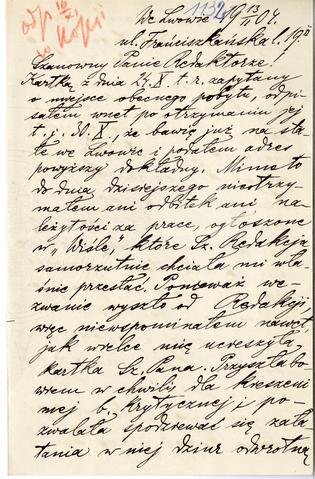 odp. 16/X
z kopji
1132
We Lwowie 19 13/II 04.
ul. Franciszkańska l. 19 II
Szanowny Panie Redaktorze!
Kartką z dnia 24.X t. r. zapytany
o miejsce obecnego pobytu, odpi-
sałem wnet po otrzymaniu jej
t. j. 30.X, że bawię już na sta-
łe we Lwowie i podałem adres
powyższy dokładny. Mimo to
do dnia dzisiejszego nie otrzy-
małem ani odbitek ani na-
leżytości za prace, ogłoszone
w „Wiśle," które Sz. Redakcja
samorzutnie chciała mi wła-
śnie przesłać. Ponieważ we-
zwanie wyszło od Redakcji
więc nie wspominałem nawet,
jak wielce mię ucieszyła
kartka Sz. Pana. Przyszła bo-
wiem w chwili, dla kieszeni
mej b. krytycznej i po-
zwalała spodziewać się zała-
tania w niej dziur odwrotną